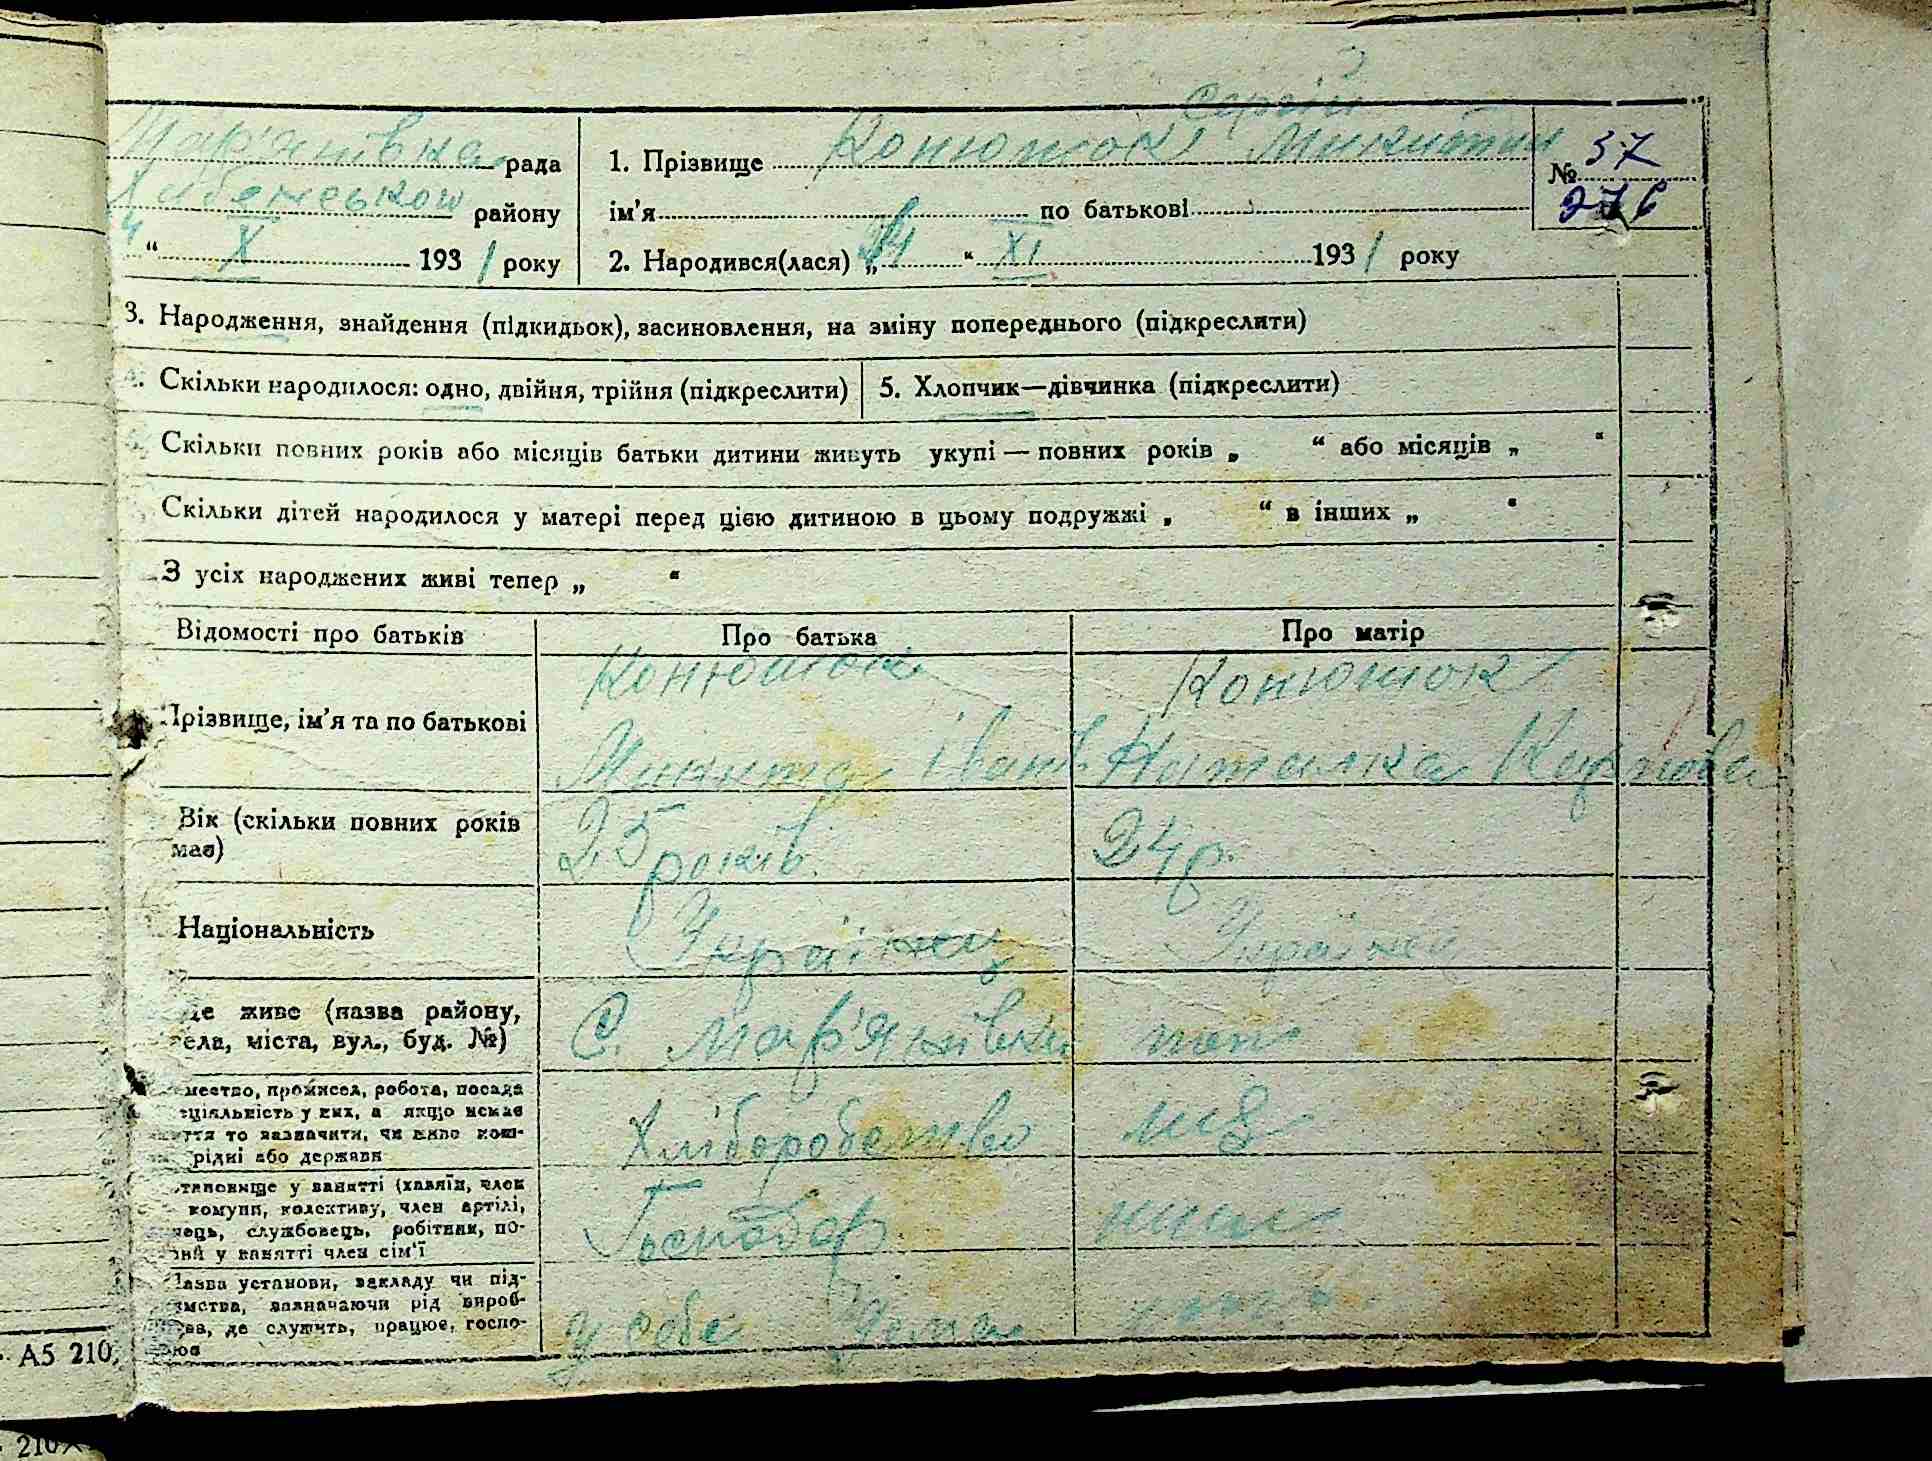 Сергій
Мар'янівка рада
Хабенського району
4 “ X 1931 року
1. Прізвище Конюшок Микитин
ім'я по батькові
2. Народився(лася) „ “ XI 1931 року
№ 37
276
3. Народження, знайдення (підкидьок), засиновлення, на зміну попереднього (підкреслити)
4. Скільки народилося: одно, двійня, трійня (підкреслити)
5. Хлопчик—дівчинка (підкреслити)
Скільки повних років або місяців батьки дитини живуть укупі — повних років „ “ або місяців „ “
Скільки дітей народилося у матері перед цією дитиною в цьому подружжі „ “ в інших „ “
З усіх народжених живі тепер „ “
Відомості про батьків
Про батька
Про матір
Прізвище, ім'я та по батькові
Конюшок
Микита Іванів
Конюшок
Наталка Карпова
Вік (скільки повних років
має)
25 років
24 р.
Національність
Українец
Україн
Де живе (назва району,
села, міста, вул., буд. №)
С. Мар'янівка
тот
мество, промисел, робота, посада
ціяльність у них, а якщо немає
ття то зазначити, чи живе кош-
рідні або держави
Хліборобство
становище у занятті (хазяїн, член
комуни, колективу, член артілі,
нець, службовець, робітник, по-
у занятті член сім'ї
Господар
Назва установи, закладу чи під-
ємства, зазначаючи рід вироб-
ва, де служить, працює, госпо-
рює
у себе дома
А5 210
210